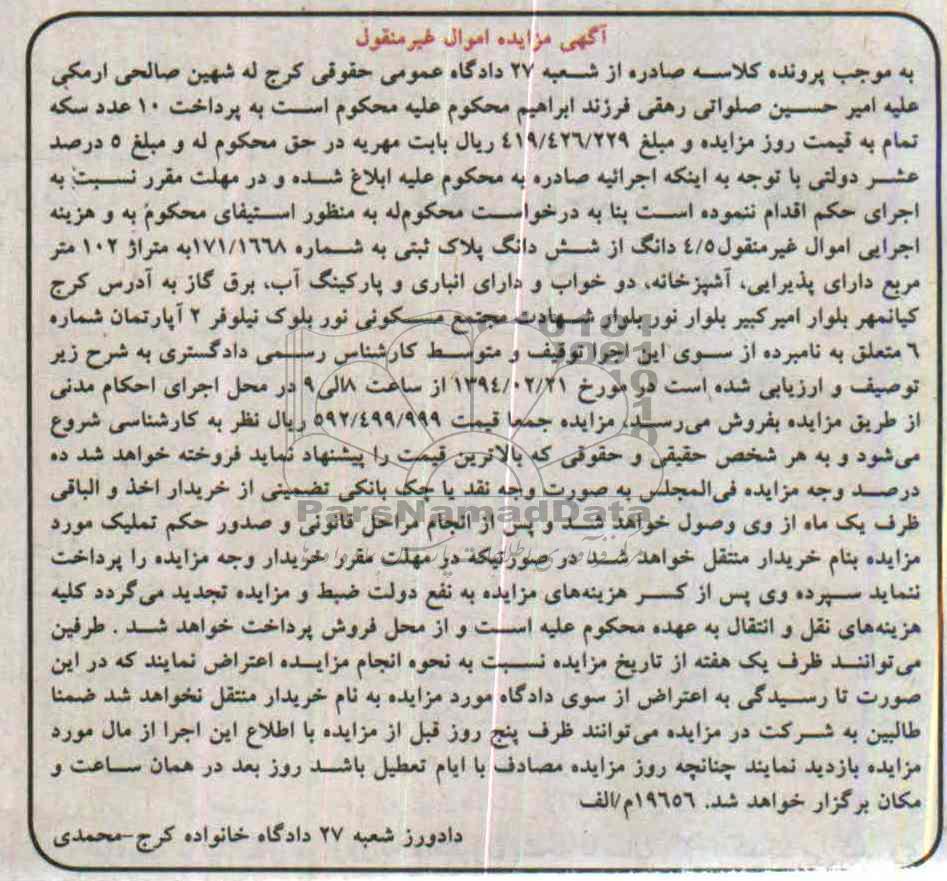 آگهی مزایده اموال غیرمنقول
به موجب پرونده کلاسه صادره از شعبه ۲۷ دادگاه عمومی حقوقی کرج له شهین صالحی ارمکی
علیه امیر حسین صلواتی رهقی فرزند ابراهیم محکوم علیه محکوم است به پرداخت ۱۰ عدد سکه
تمام به قیمت روز مزایده و مبلغ ۴۱۹/۴۲۶/۲۲۹ ریال بابت مهریه در حق محکوم له و مبلغ ۵ درصد
عشر دولتی با توجه به اینکه اجرائیه صادره به محکوم علیه ابلاغ شده و در مهلت مقرر نسبت به
اجرای حکم اقدام ننموده است بنا به درخواست محکوم‌له به منظور استیفای محکوم به و هزینه
اجرایی اموال غیرمنقول۴/۵ دانگ از شش دانگ پلاک ثبتی به شماره ۱۷۱/۱۶۶۸به متراژ ۱۰۲ متر
مربع دارای پذیرایی، آشپزخانه، دو خواب و دارای انباری و پارکینگ آب، برق گاز به آدرس کرج
کیانمهر بلوار امیرکبیر بلوار نور بلوار شهادت مجتمع مسکونی نور بلوک نیلوفر ۲ آپارتمان شماره
۶ متعلق به نامبرده از سوی این اجرا توقیف و متوسط کارشناس رسمی دادگستری به شرح زیر
توصیف و ارزیابی شده است در مورخ ۱۳۹۴/۰۲/۲۱ از ساعت ۸الی۹ در محل اجرای احکام مدنی
از طریق مزایده بفروش می‌رسد، مزایده جمعا قیمت ۵۹۲/۴۹۹/۹۹۹ ریال نظر به کارشناسی شروع
می‌شود و به هر شخص حقیقی و حقوقی که بالاترین قیمت را پیشنهاد نماید فروخته خواهد شد ده
درصد وجه مزایده فی‌المجلس به صورت وجه نقد یا چک بانکی تضمینی از خریدار اخذ و الباقی
ParsNamadData
ظرف یک ماه از وی وصول خواهد شد و پس از انجام مراحل قانونی و صدور حکم تملیک مورد
مزایده بنام خریدار منتقل خواهد شد در صورتیکه در مهلت مقرر خریدار وجه مزایده را پرداخت
ننماید سپرده وی پس از کسر هزینه‌های مزایده به نفع دولت ضبط و مزایده تجدید می‌گردد کلیه
هزینه‌های نقل و انتقال به عهده محکوم علیه است و از محل فروش پرداخت خواهد شد . طرفین
می‌توانند ظرف یک هفته از تاریخ مزایده نسبت به نحوه انجام مزایده اعتراض نمایند که در این
صورت تا رسیدگی به اعتراض از سوی دادگاه مورد مزایده به نام خریدار منتقل نخواهد شد ضمنا
طالبین به شرکت در مزایده می‌توانند ظرف پنج روز قبل از مزایده با اطلاع این اجرا از مال مورد
مزایده بازدید نمایند چنانچه روز مزایده مصادف با ایام تعطیل باشد روز بعد در همان ساعت و
مکان برگزار خواهد شد. ۱۹۶۵۶م/الف
دادورز شعبه ۲۷ دادگاه خانواده کرج-محمدی